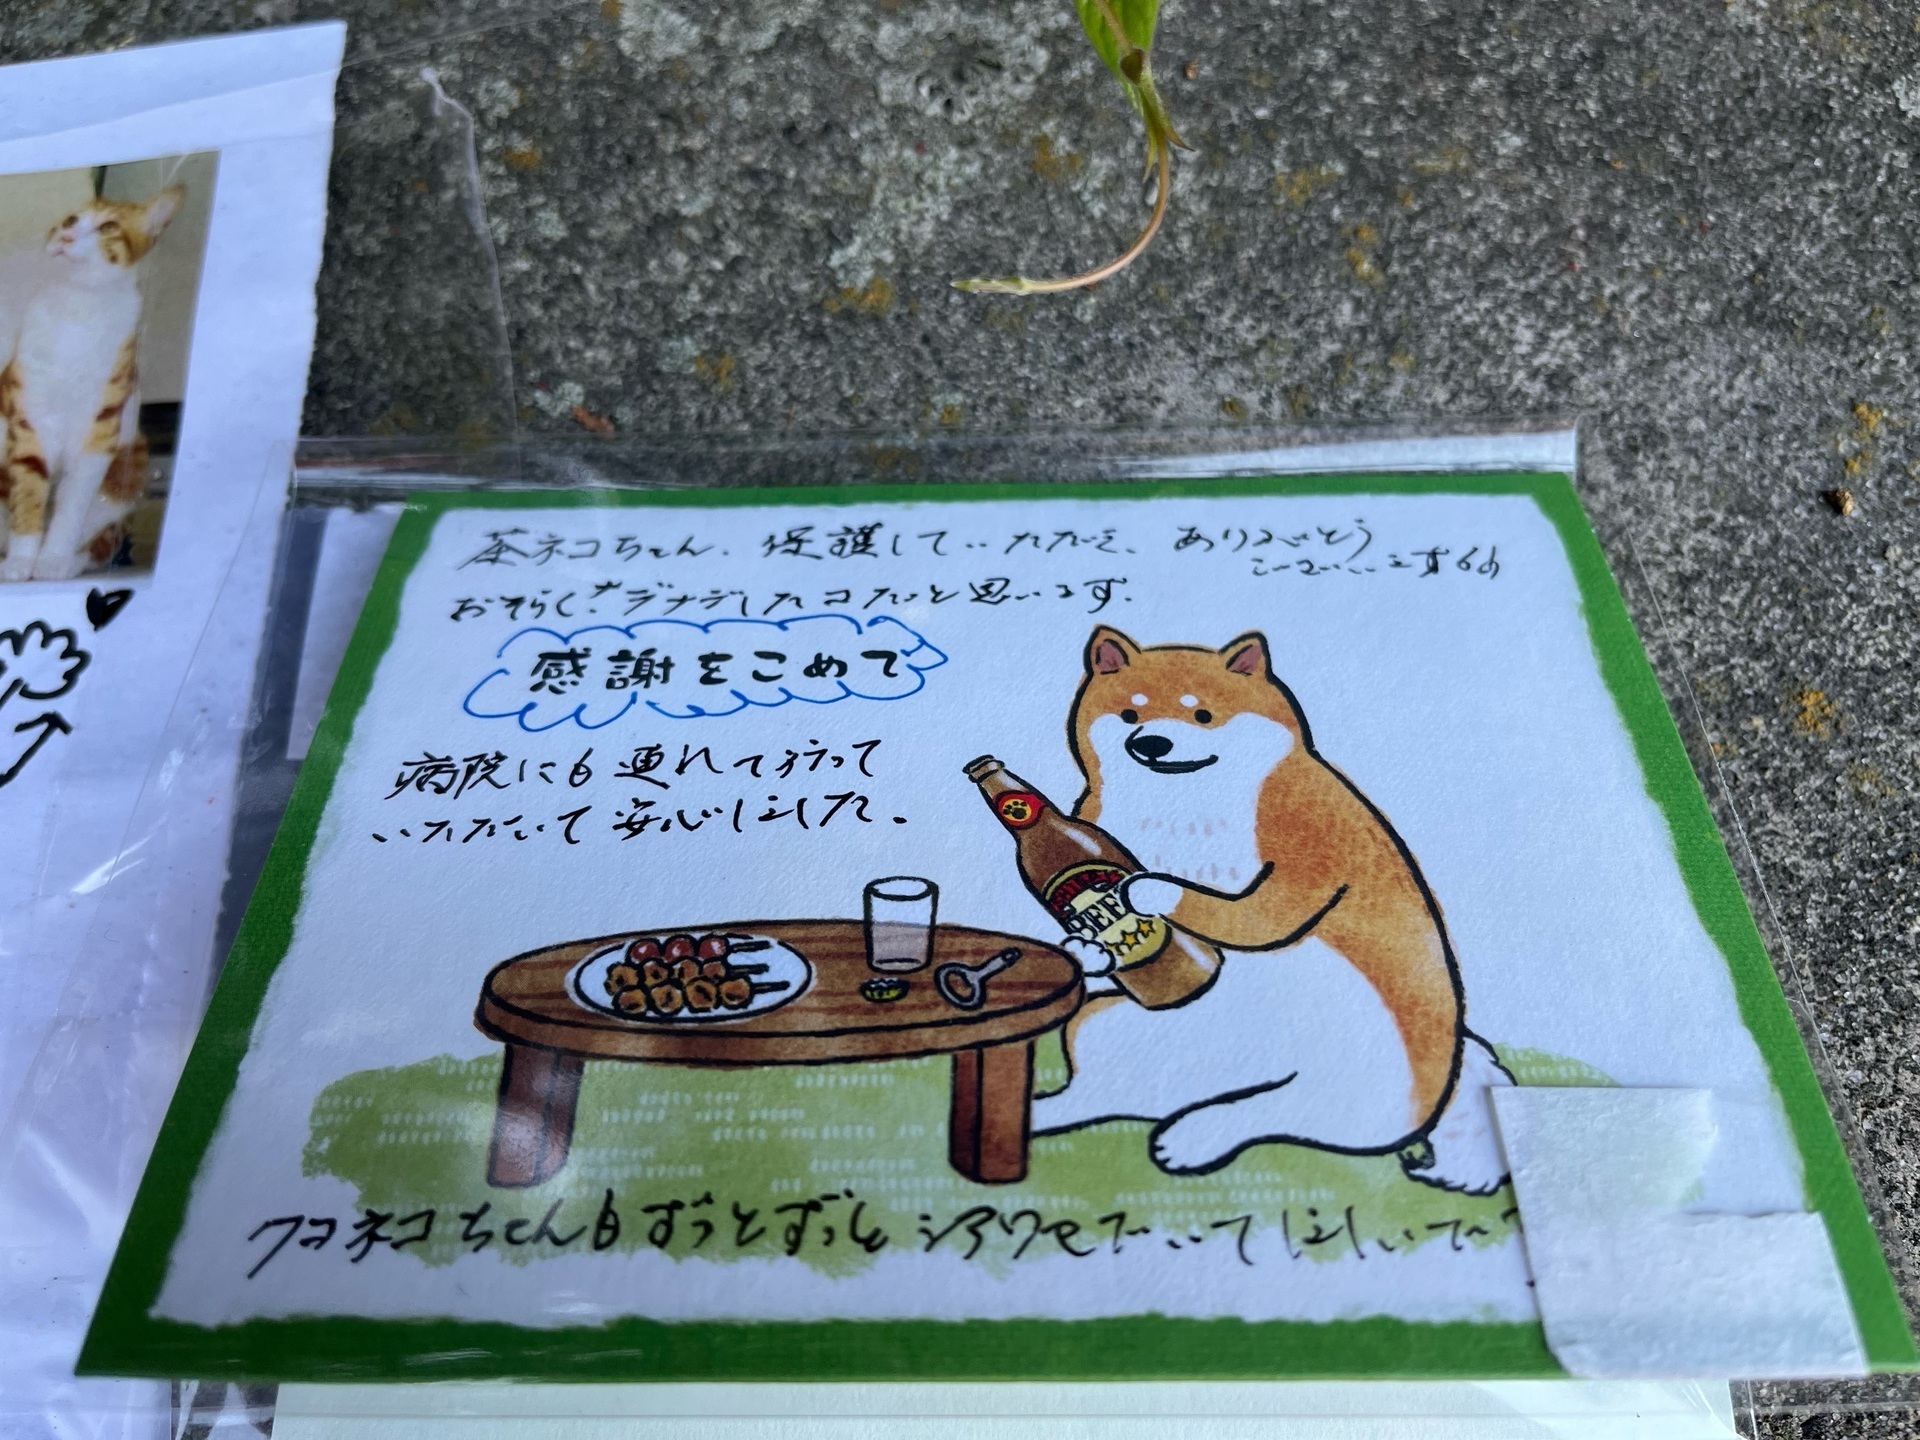 茶ネコちゃん、保護していただき、ありがとう
ございます
おそらく、ナデナデしたコだと思います。
感謝をこめて
病院にも連れて行って
いただいて安心しました。
BEE
クロネコちゃんもずっとずっとシアワセでいてほしいで